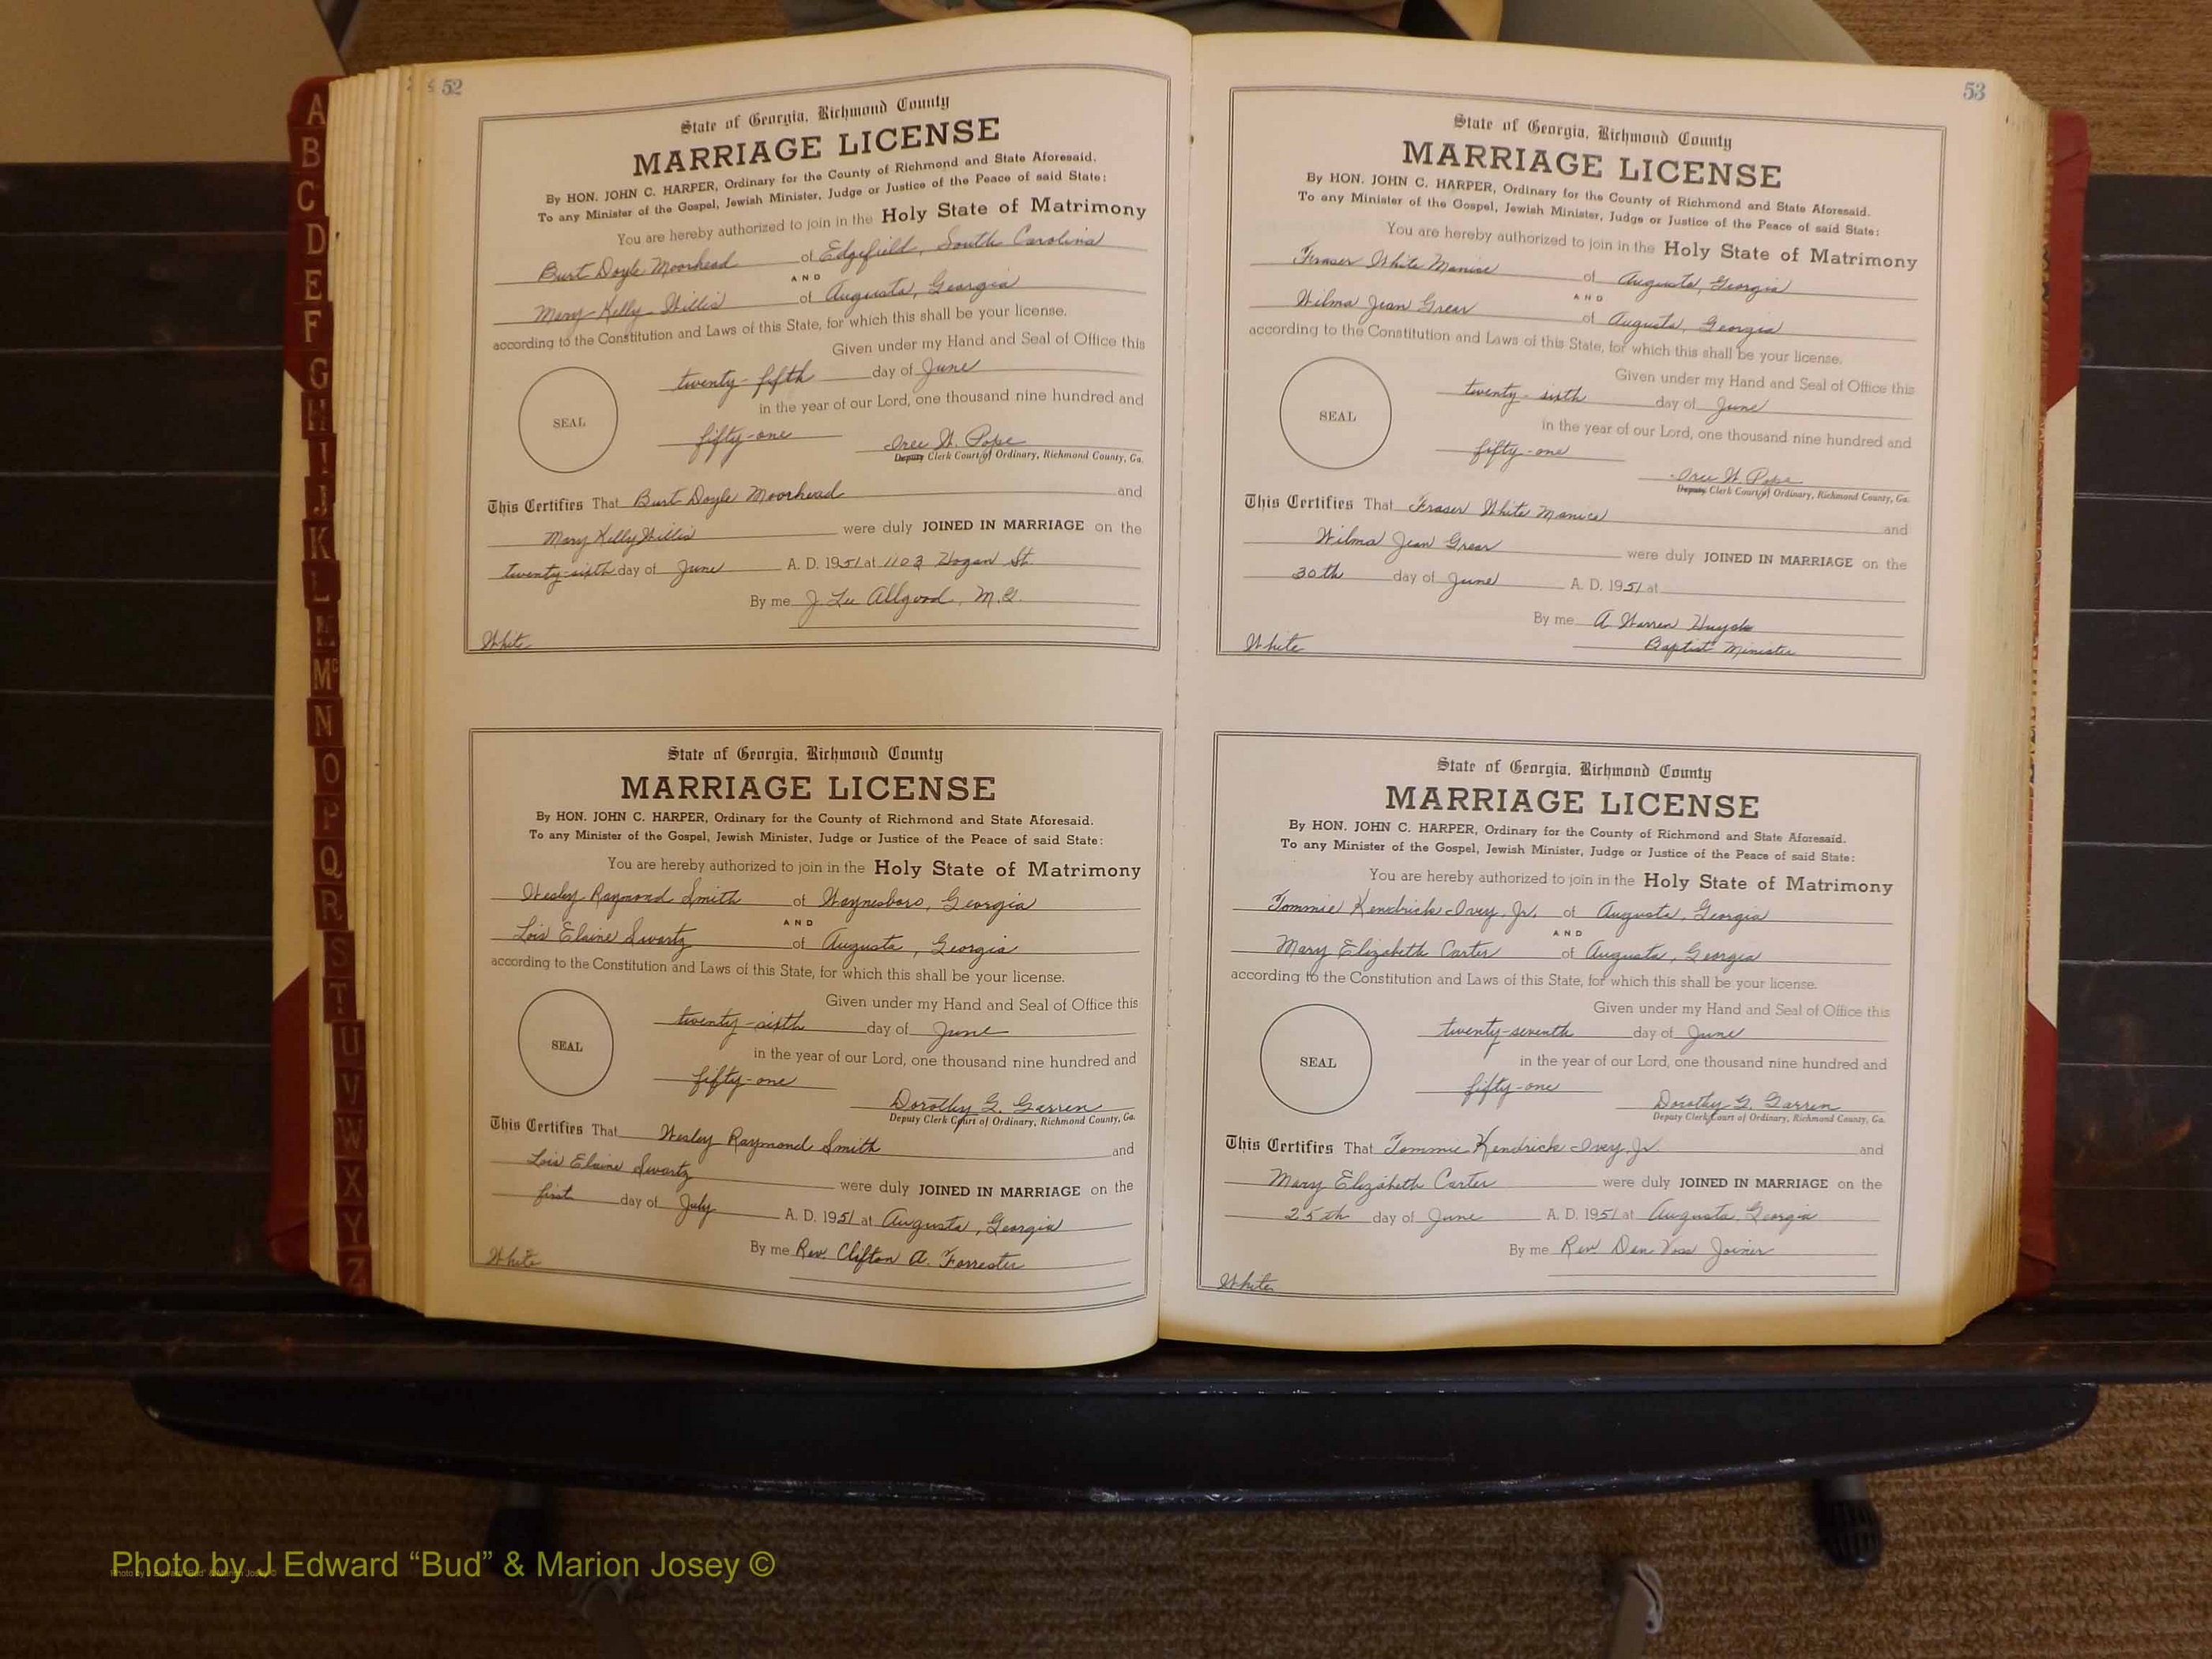 52
State of Georgia, Richmond County
MARRIAGE LICENSE
By HON. JOHN C. HARPER, Ordinary for the County of Richmond and State Aforesaid.
To any Minister of the Gospel, Jewish Minister, Judge or Justice of the Peace of said State:
You are hereby authorized to join in the Holy State of Matrimony
Burt Doyle Moorhead of Edgefield, South Carolina
AND
Mary Kelly Willis of Augusta, Georgia
according to the Constitution and Laws of this State, for which this shall be your license.
Given under my Hand and Seal of Office this
twenty-fifth day of June
in the year of our Lord, one thousand nine hundred and
SEAL
fifty-one W. Pope
Deputy Clerk Court of Ordinary, Richmond County, Ga.
This Certifies That Burt Doyle Moorhead and
Mary Kelly Willis were duly JOINED IN MARRIAGE on the
twenty-sixth day of June A. D. 1951 at 1103 Hogan St.
By me J. Lee Allgood, M.G.
White
State of Georgia, Richmond County
MARRIAGE LICENSE
By HON. JOHN C. HARPER, Ordinary for the County of Richmond and State Aforesaid.
To any Minister of the Gospel, Jewish Minister, Judge or Justice of the Peace of said State:
You are hereby authorized to join in the Holy State of Matrimony
Wesley Raymond Smith of Waynesboro, Georgia
AND
Lois Elaine Swartz of Augusta, Georgia
according to the Constitution and Laws of this State, for which this shall be your license.
Given under my Hand and Seal of Office this
twenty-sixth day of June
SEAL
in the year of our Lord, one thousand nine hundred and
fifty-one
Dorothy G. Garren
Deputy Clerk Court of Ordinary, Richmond County, Ga.
This Certifies That Wesley Raymond Smith and
Lois Elaine Swartz were duly JOINED IN MARRIAGE on the
first day of July A. D. 1951 at Augusta, Georgia
By me Rev. Clifton A. Forrester
White
53
State of Georgia, Richmond County
MARRIAGE LICENSE
By HON. JOHN C. HARPER, Ordinary for the County of Richmond and State Aforesaid.
To any Minister of the Gospel, Jewish Minister, Judge or Justice of the Peace of said State:
You are hereby authorized to join in the Holy State of Matrimony
Fraser White Manice of Augusta, Georgia
AND
Wilma Jean Grear of Augusta, Georgia
according to the Constitution and Laws of this State, for which this shall be your license.
Given under my Hand and Seal of Office this
twenty-sixth day of June
SEAL
in the year of our Lord, one thousand nine hundred and
fifty-one
W. Pope
Deputy Clerk Court of Ordinary, Richmond County, Ga.
This Certifies That Fraser White Manice and
Wilma Jean Grear were duly JOINED IN MARRIAGE on the
30th day of June A. D. 1951 at
By me A. Warren Huyck
Baptist Minister
White
State of Georgia, Richmond County
MARRIAGE LICENSE
By HON. JOHN C. HARPER, Ordinary for the County of Richmond and State Aforesaid.
To any Minister of the Gospel, Jewish Minister, Judge or Justice of the Peace of said State:
You are hereby authorized to join in the Holy State of Matrimony
Tommie Kendrick Ivey, Jr. of Augusta, Georgia
AND
Mary Elizabeth Carter of Augusta, Georgia
according to the Constitution and Laws of this State, for which this shall be your license.
Given under my Hand and Seal of Office this
twenty-seventh day of June
SEAL
in the year of our Lord, one thousand nine hundred and
fifty-one
Dorothy G. Garren
Deputy Clerk Court of Ordinary, Richmond County, Ga.
This Certifies That Tommie Kendrick Ivey, Jr. and
Mary Elizabeth Carter were duly JOINED IN MARRIAGE on the
25th day of June A. D. 1951 at Augusta, Georgia
By me Rev Joiner
White
A
B
C
D
E
F
G
H
I
J
K
L
M
Mc
N
O
P
Q
R
S
T
U
V
W
X
Y
Z
Photo by J Edward “Bud” & Marion Josey ©
Photo by J Edward "Bud" & Marion Josey ©